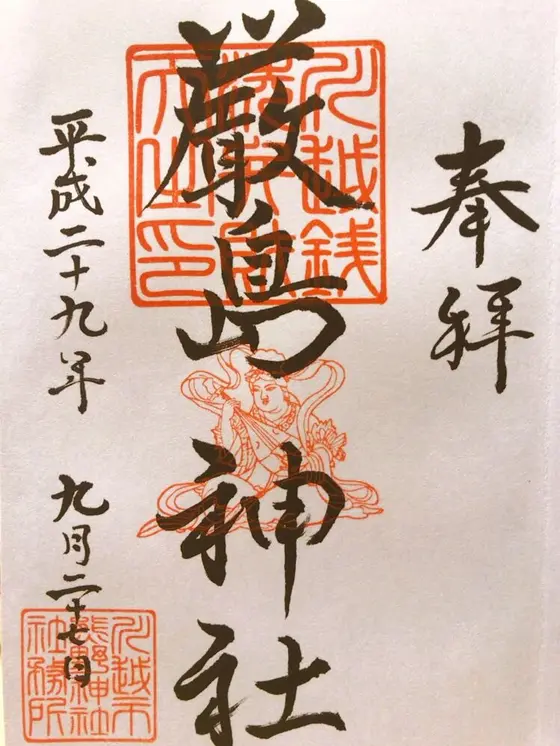 奉拝
厳島神社
川越銭
洗弁財
平成二十九年 九月二十七日
川越市
熊野神社
社務所